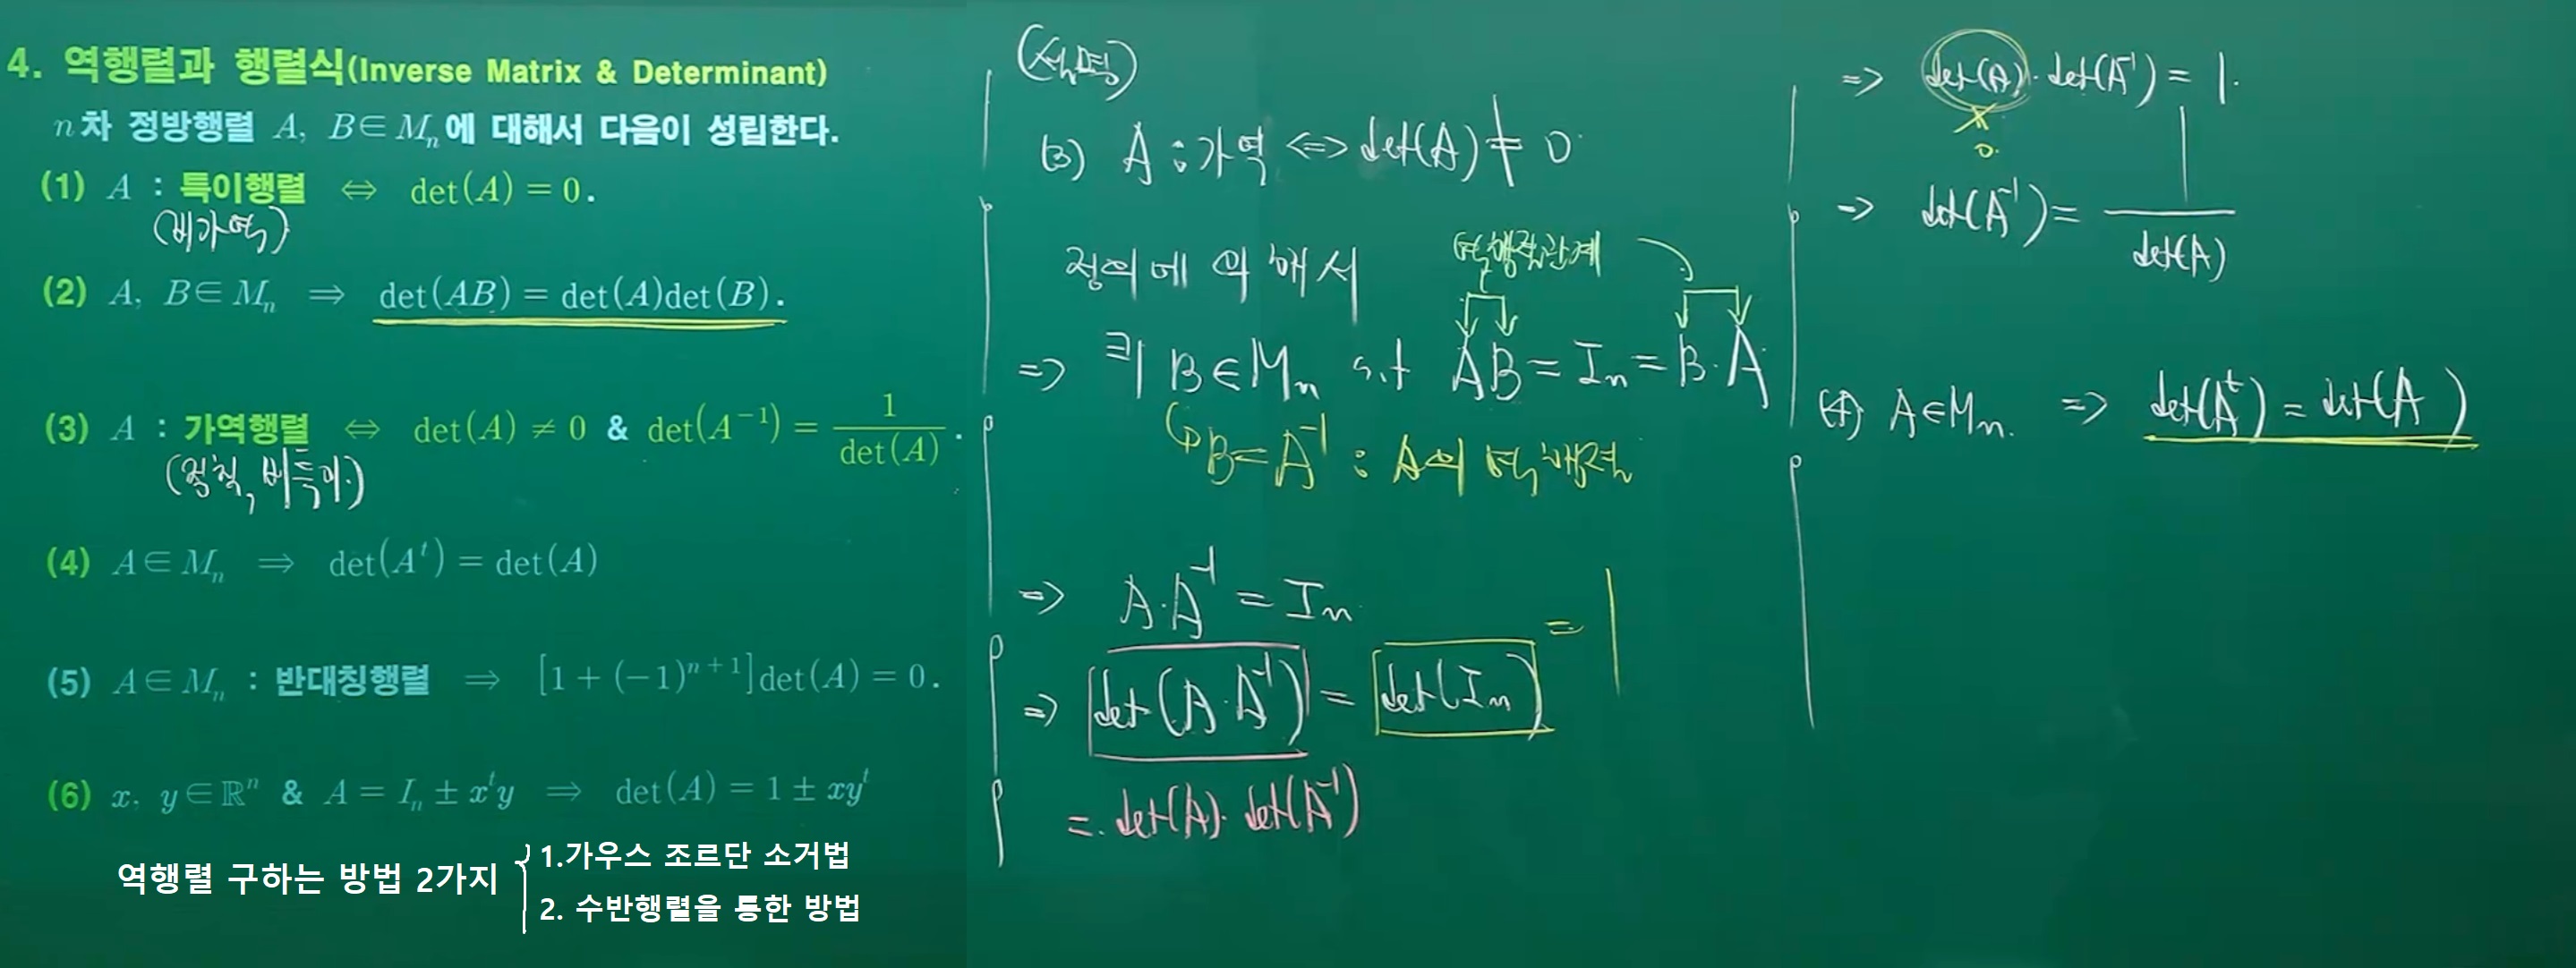 4. 역행렬과 행렬식(Inverse Matrix & Determinant)
n차 정방행렬 A, B∈Mₙ에 대해서 다음이 성립한다.
(1) A : 특이행렬 ⇔ det(A) = 0.
(비가역)
(2) A, B∈Mₙ ⇒ det(AB) = det(A)det(B).
(3) A : 가역행렬 ⇔ det(A) ≠ 0 & det(A⁻¹) = 1/det(A).
(정칙, 비특이.)
(4) A∈Mₙ ⇒ det(Aᵗ) = det(A)
(5) A∈Mₙ : 반대칭행렬 ⇒ [1+(−1)ⁿ⁺¹]det(A) = 0.
(6) x, y∈ℝⁿ & A = Iₙ ± xᵗy ⇒ det(A) = 1 ± xyᵗ
역행렬 구하는 방법 2가지
1.가우스 조르단 소거법
2. 수반행렬을 통한 방법
(설명)
(3) A : 가역 ⇔ det(A) ≠ 0.
정의에 의해서
역행렬관계
⇒ ∃B∈Mₙ s.t AB = Iₙ = B·A
B = A⁻¹ : A의 역행렬
⇒ A·A⁻¹ = Iₙ
⇒ det(A·A⁻¹) = det(Iₙ) = 1
= det(A)·det(A⁻¹)
⇒ det(A)·det(A⁻¹) = 1.
0.
⇒ det(A⁻¹) = 1/det(A)
(4) A∈Mₙ. ⇒ det(Aᵗ) = det(A)